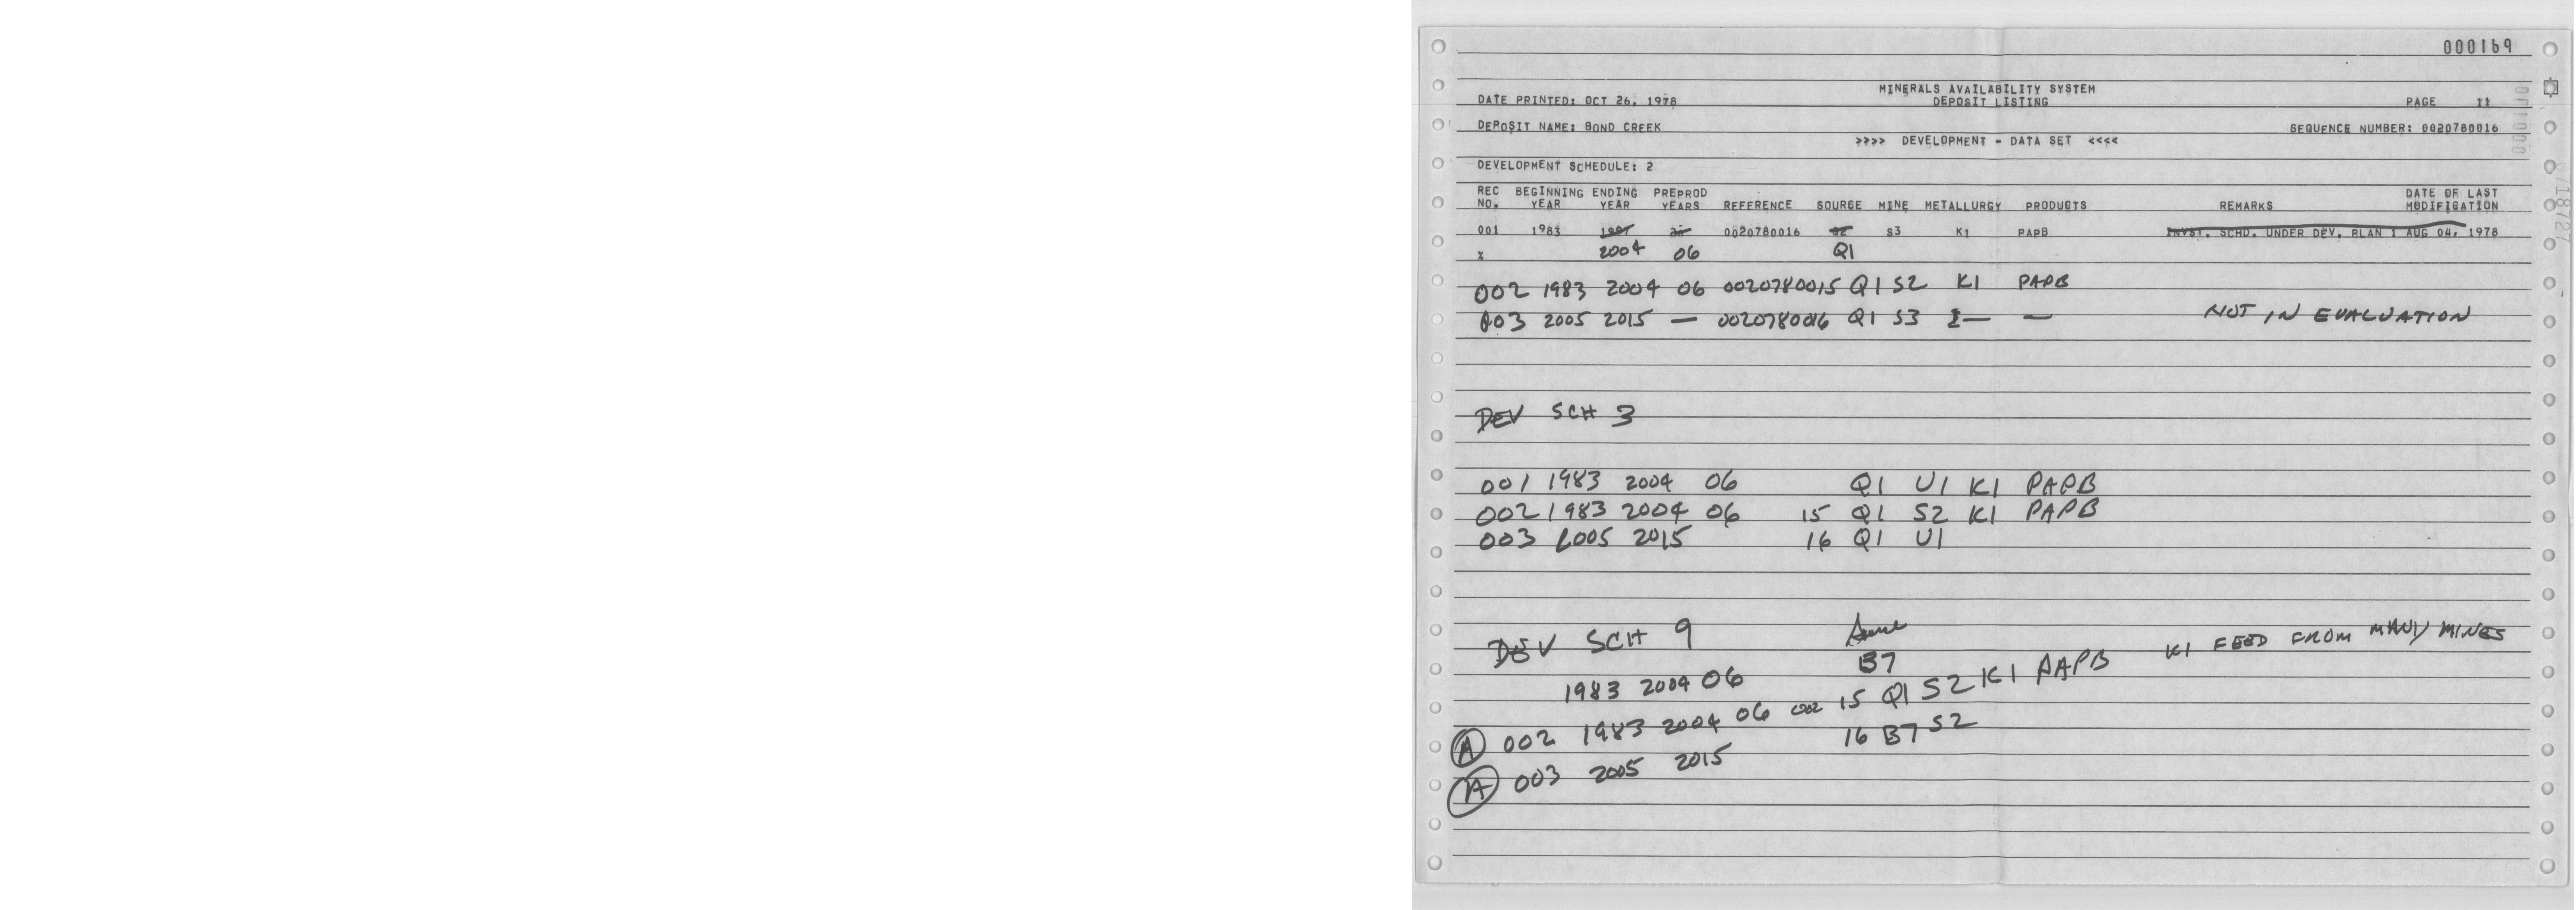 000169
MINERALS AVAILABILITY SYSTEM
DATE PRINTED: OCT 26, 1978 DEPOSIT LISTING PAGE 11
DEPOSIT NAME: BOND CREEK SEQUENCE NUMBER: 0020780016
>>>> DEVELOPMENT - DATA SET <<<<
DEVELOPMENT SCHEDULE: 2
REC BEGINNING ENDING PREPROD DATE OF LAST
NO. YEAR YEAR YEARS REFERENCE SOURCE MINE METALLURGY PRODUCTS REMARKS MODIFICATION
001 1983 0020780016 S3 K1 PAPB INVST. SCHD. UNDER DEV. PLAN 1 AUG 04, 1978
% 2004 06 Q1
002 1983 2004 06 0020780015 Q1 S2 K1 PAPB
003 2005 2015 — 0020780016 Q1 S3 — — NOT IN EVALUATION
DEV SCH 3
001 1983 2004 06 Q1 U1 K1 PAPB
002 1983 2004 06 15 Q1 S2 K1 PAPB
003 2005 2015 16 Q1 U1
DEV SCH 9
1983 2004 06 B7 K1 FEED FROM MANY MINES
A 002 1983 2004 06 002 15 Q1 S2 K1 PAPB
A 003 2005 2015 16 B7 S2